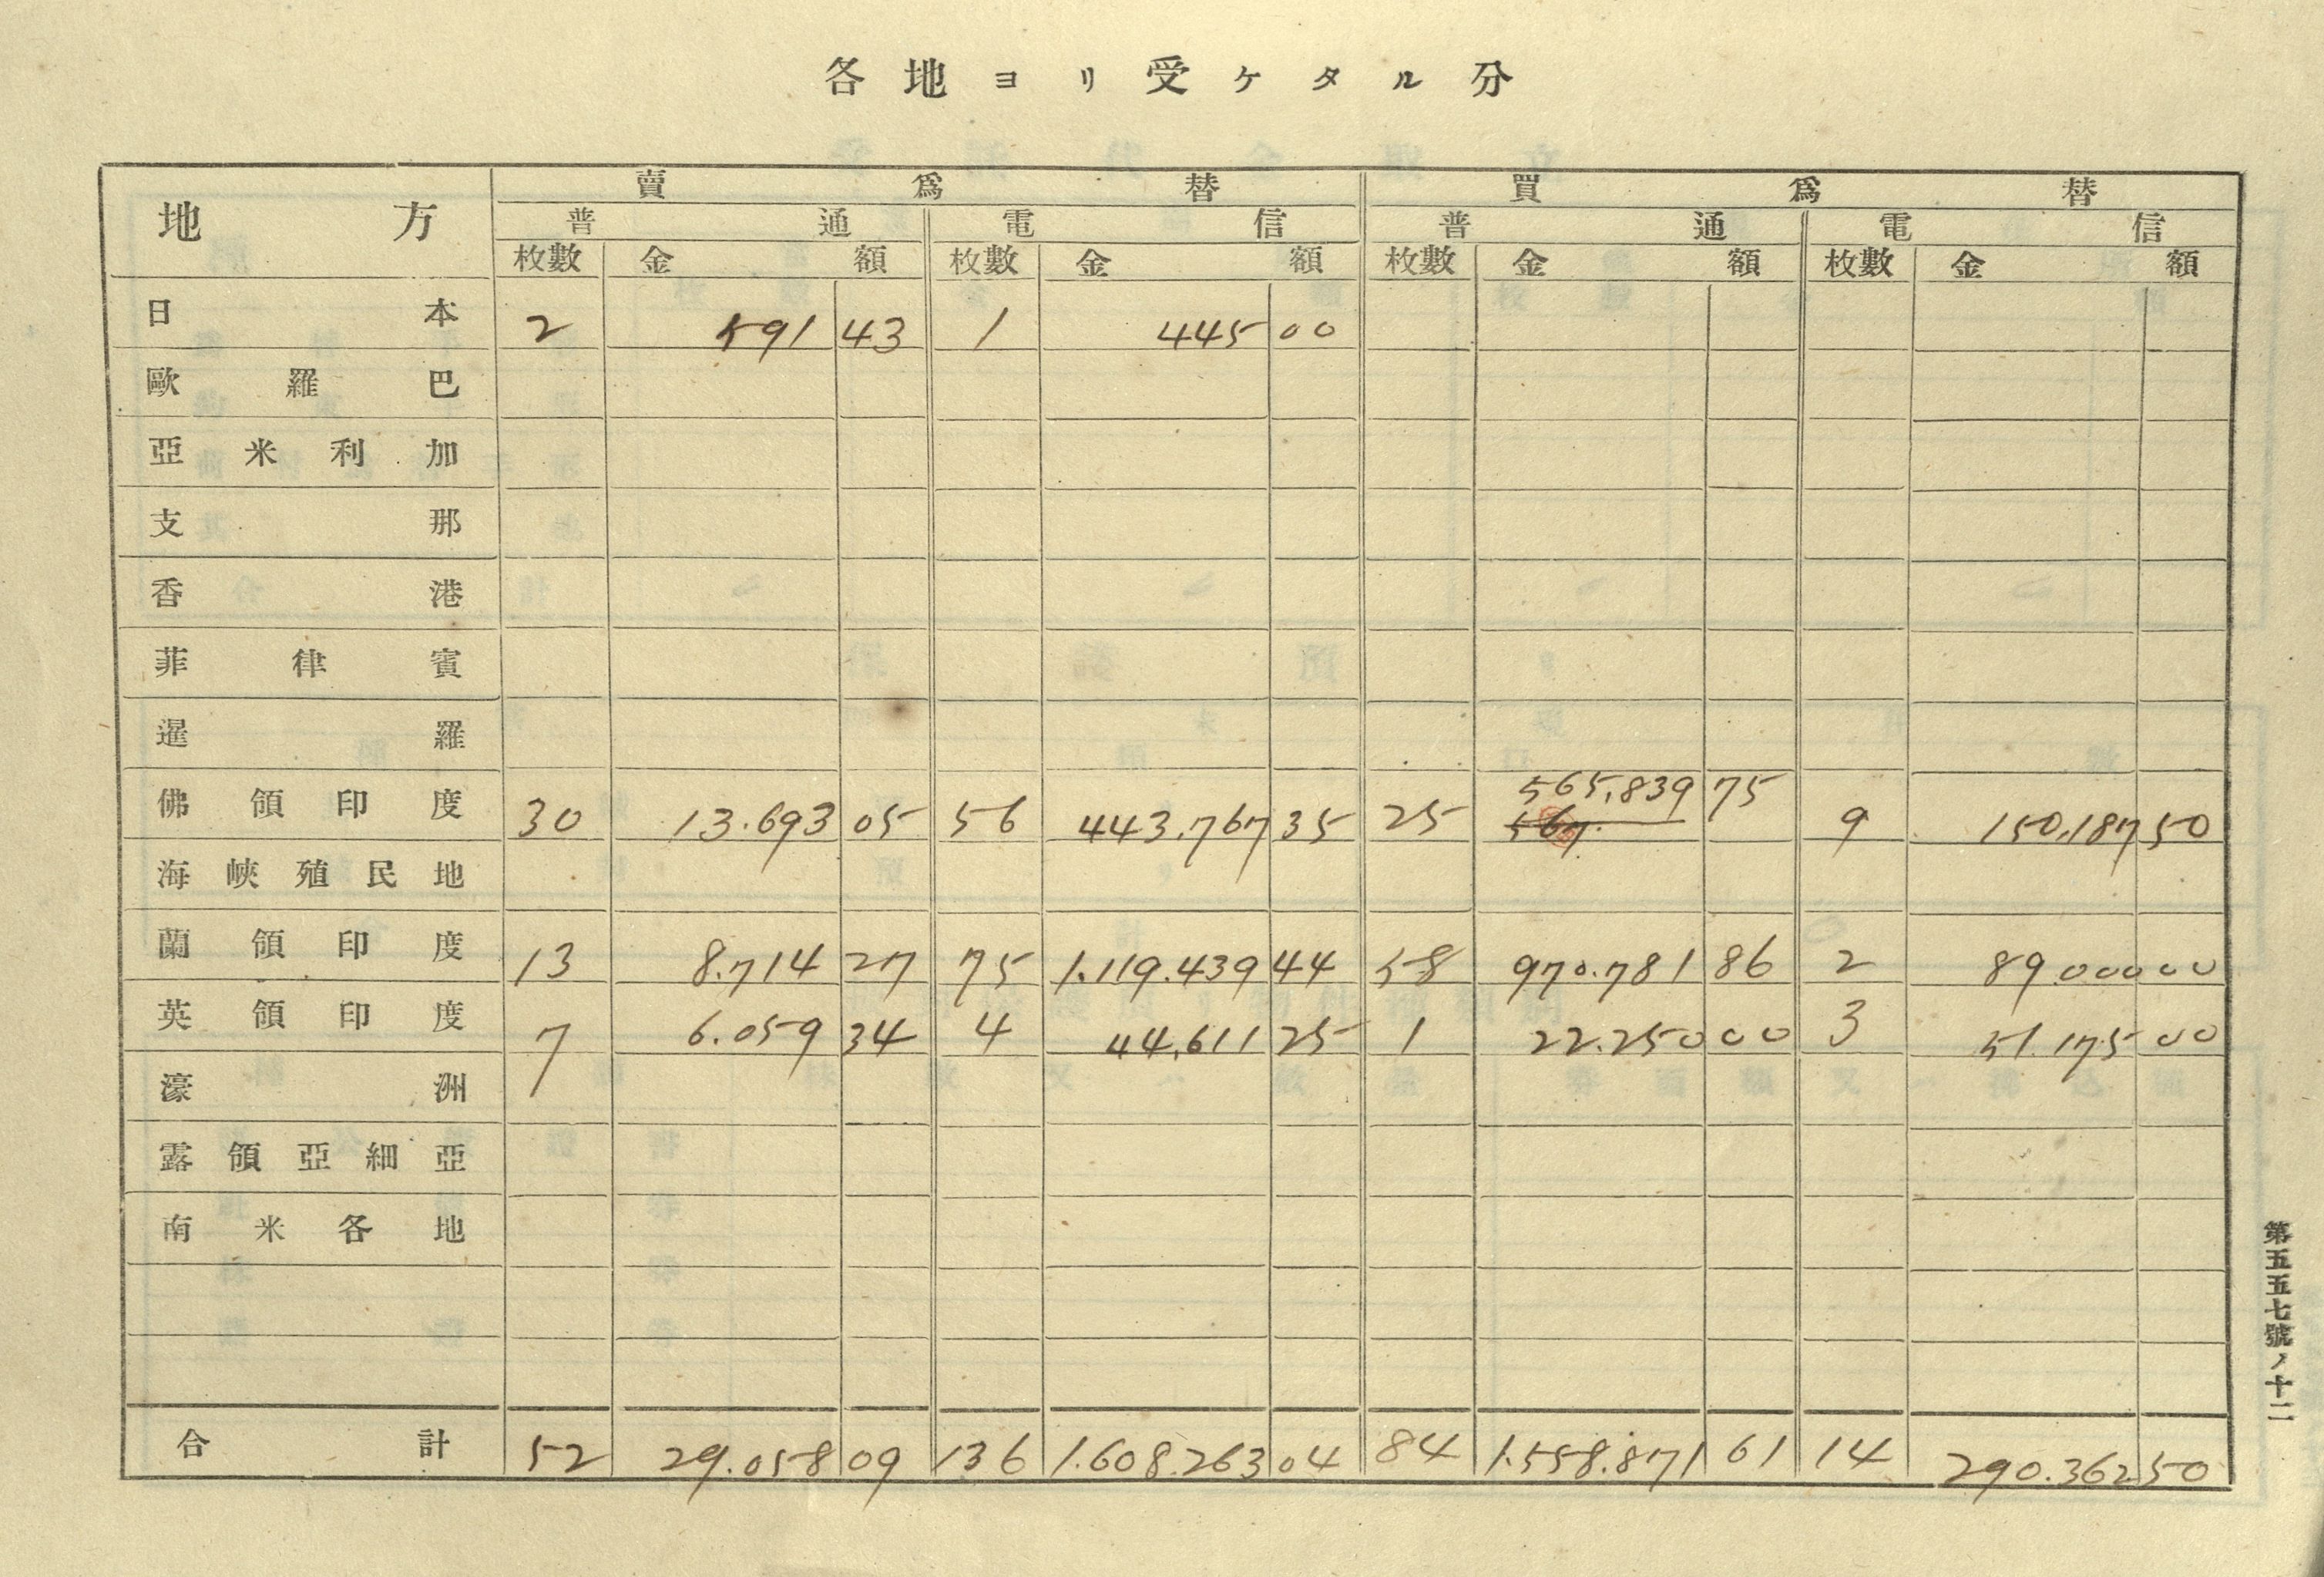 各地ヨリ受ケタル分
地方 賣爲替 買爲替
普通 電信 普通 電信
枚數 金額 枚數 金額 枚數 金額 枚數 金額
日本 2 591 43 1 445 00
歐羅巴
亞米利加
支那
香港
菲律賓
暹羅
565,839 75
佛領印度 30 13.693 05 56 443,767 35 25 567. 9 150,187 50
海峽殖民地
蘭領印度 13 8.714 27 75 1.119.439 44 58 970.781 86 2 89.000 00
英領印度 7 6.059 34 4 44,611 25 1 22.250 00 3 51.175 00
濠洲
露領亞細亞
南米各地
合計 52 29.058 09 136 1.608.263 04 84 1.558.871 61 14 290.362 50
第五五七號ノ十二